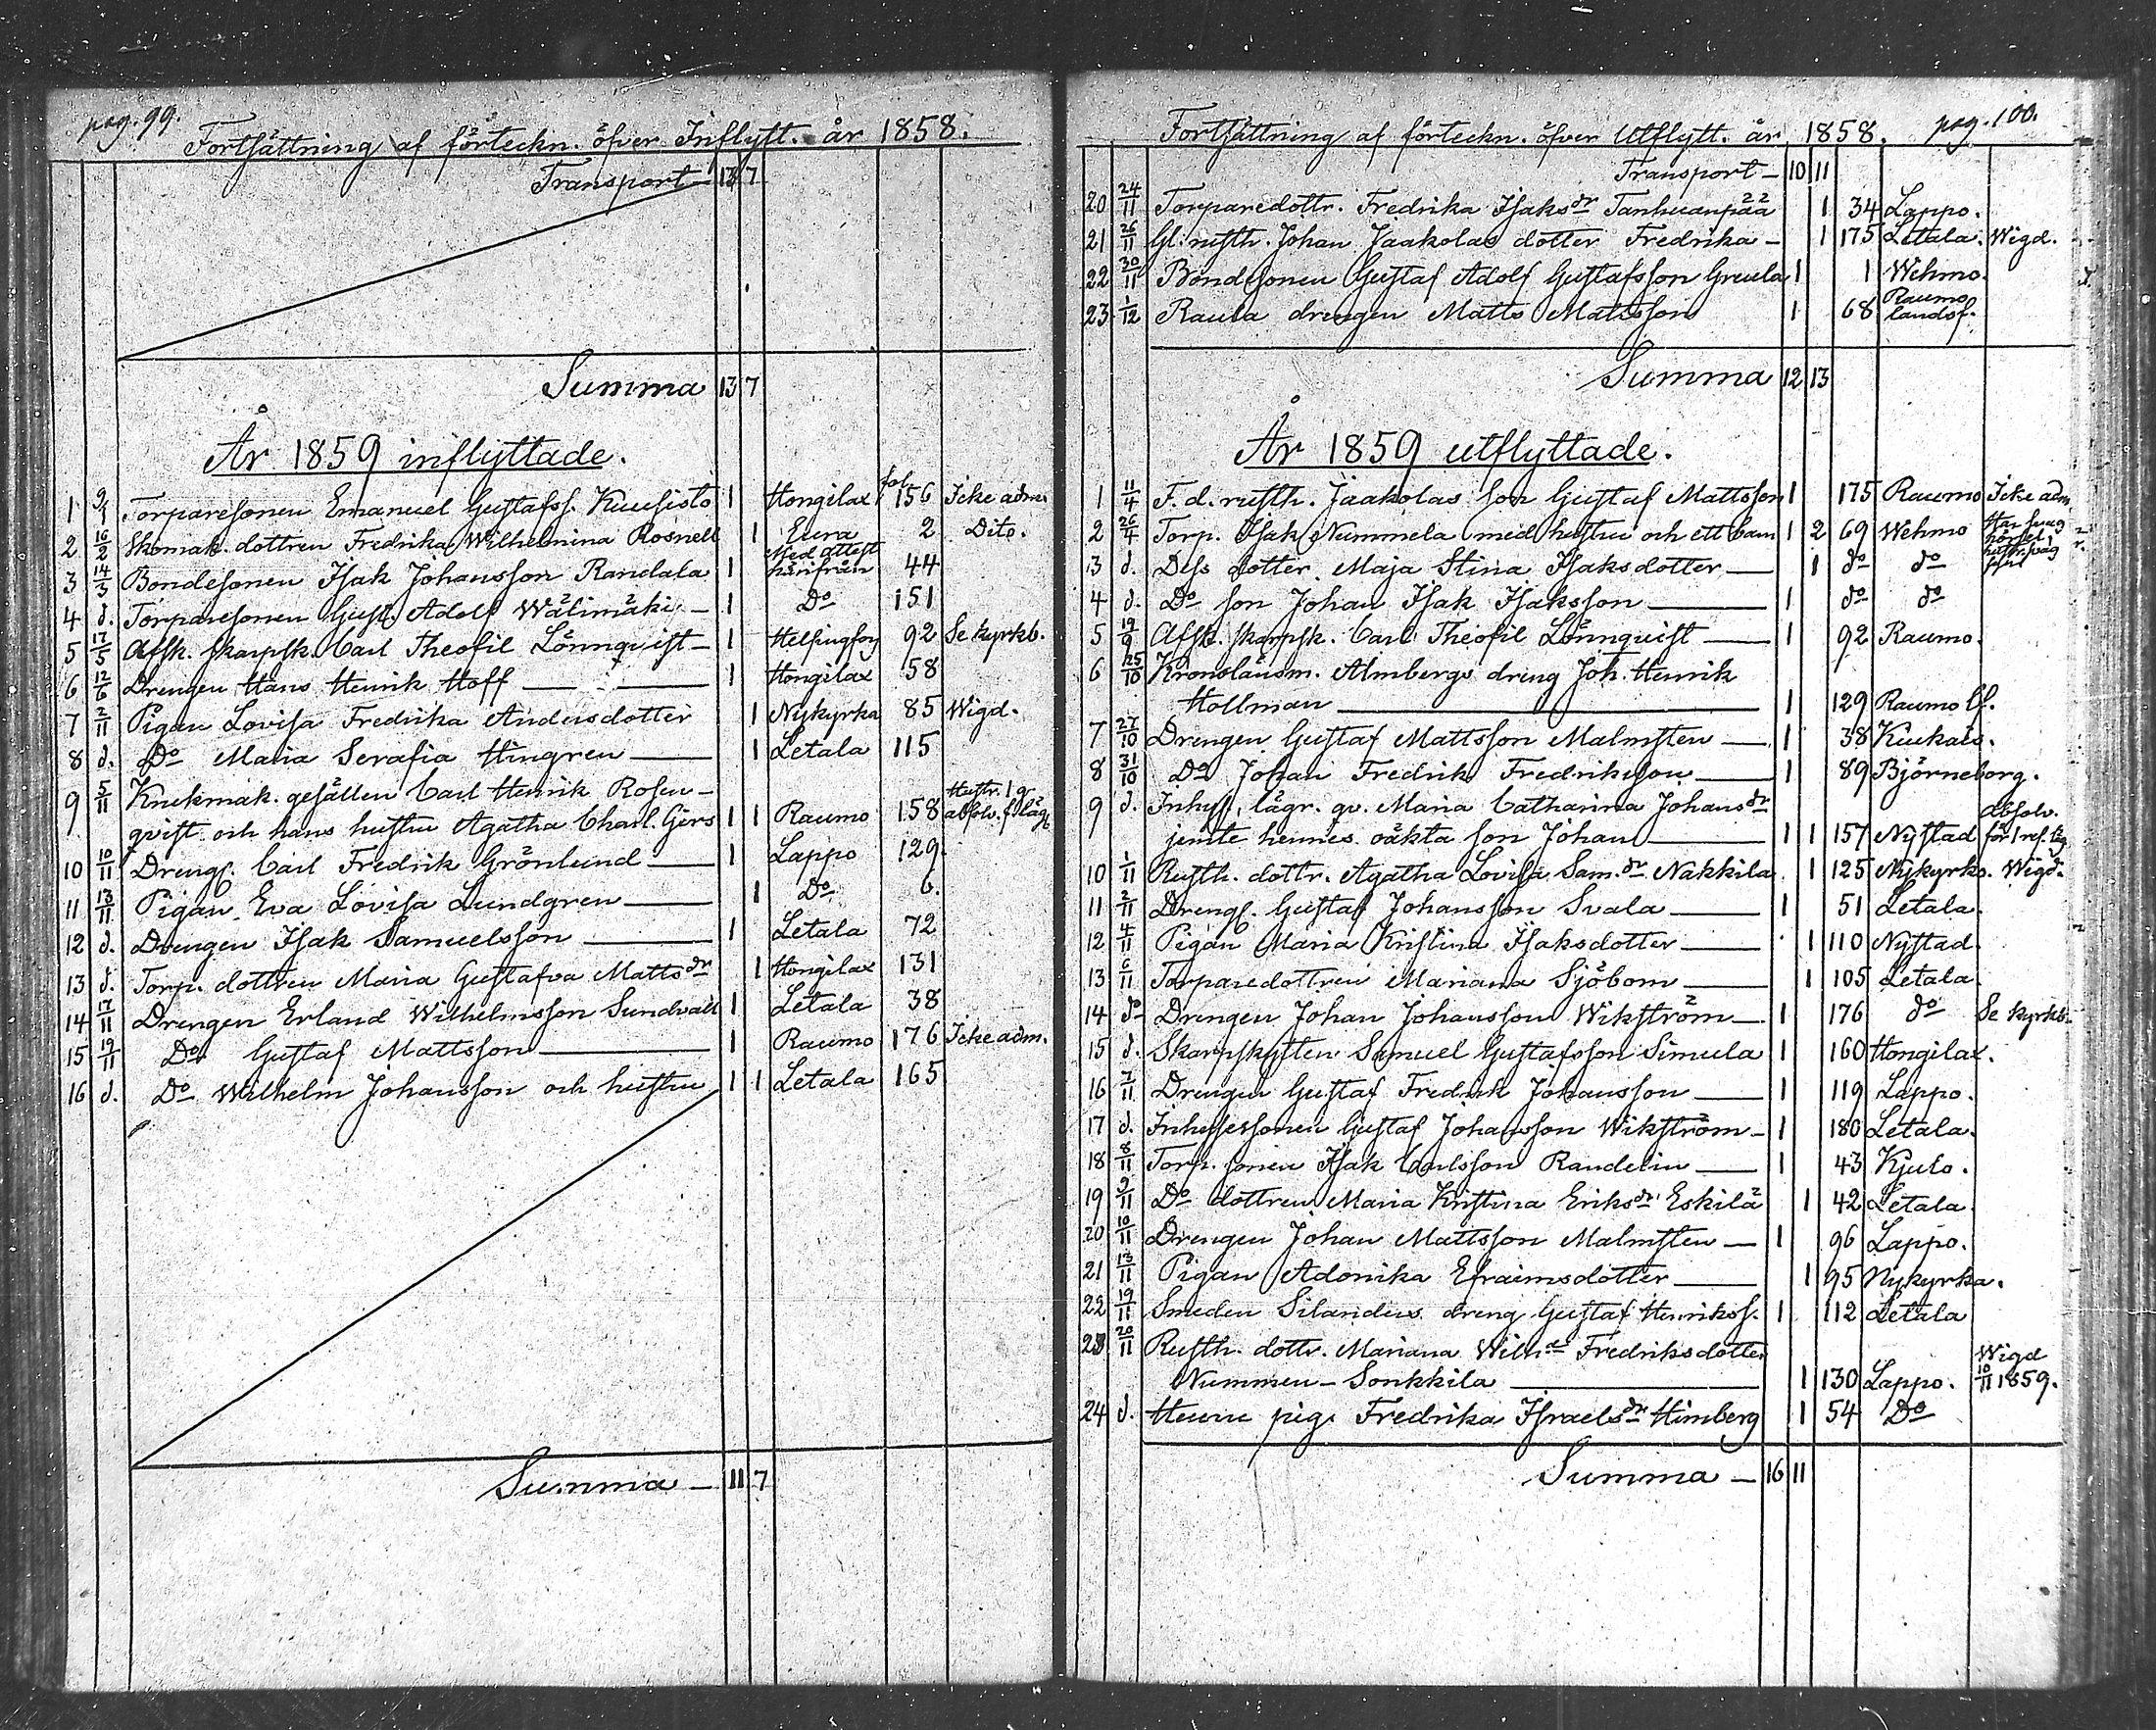 pag. 99.
Fortsättning af förteckn. öfver Inflytt. år 1858.
Transport — 13 7
Summa 13 7
År 1859 inflyttade.
fol.
1 9/1 Torparesonen Emanuel Gustafss. Kuusisto 1 Hongilax 156 Icke adm.
2 16/2 Skomak. dottren Fredrika Wilhelmina Rosnell 1 Eura 2 Dito.
3 14/3 Bondesonen Isak Johansson Randala 1 Med attest härifrån 44
4 d. Torparesonen Gust. Adolf Wälimäki — 1 Do 151
5 17/5 Afsk. skarpsk. Carl Theofil Lönnqvist — 1 Helsingfors 92 Se kyrkb.
6 12/6 Drengen Hans Henrik Hoff — 1 Hongilax 58
7 2/11 Pigan Lovisa Fredrika Andersdotter 1 Nykyrka 85 Wigd.
8 d. Do Maria Serafia Hingren — 1 Letala 115
9 5/11 Knekmak. gesällen Carl Henrik Rosen- Hustr. 1 gr
qvist och hans hustru Agatha Charl. Gers 1 1 Raumo 158 absolv. f. läg.
10 10/11 Drengs. Carl Fredrik Grönlund — 1 Lappo 129.
11 13/11 Pigan Eva Lovisa Lundgren — 1 Do 6.
12 d. Drengen Isak Samuelsson — 1 Letala 72
13 d. Torp. dottren Maria Gustafva Matts dr 1 Hongilax 131
14 17/11 Drengen Erland Wilhelmsson Sundvall 1 Letala 38
15 19/11 Do Gustaf Mattsson — 1 Raumo 176 Icke adm.
16 d. Do Wilhelm Johansson och hustru 1 1 Letala 165
Summa — 11 7
pag. 100.
Fortsättning af förteckn. öfver Utflytt. år 1858.
Transport — 10 11
20 24/11 Torparedottr. Fredrika Isaks dr Tanhuanpää 1 34 Lappo.
21 26/11 Gl. rusth. Johan Jaakolas dotter Fredrika — 1 175 Letala. Wigd.
22 30/11 Bondesonen Gustaf Adolf Gustafsson Greula 1 1 Wehmo.
23 1/12 Raula drengen Matts Mattsson 1 68 Raumo landsf.
Summa 12 13
År 1859 utflyttade.
1 11/4 F. d. rusth. Jaakolas son Gustaf Mattsson 1 175 Raumo Icke adm.
2 26/4 Torp. Isak Nummela med hustru och ett barn 1 2 69 Wehmo
3 d. Dess dotter Maja Stina Isaksdotter — 1 do do
4 d. Do son Johan Isak Isaksson — 1 do do
5 19/9 Afsk. skarpsk. Carl Theofil Lönnqvist — 1 92 Raumo.
6 25/10 Kronolänsm. Almbergs dreng Joh. Henrik
Hollman — 1 129 Raumo lf.
7 27/10 Drengen Gustaf Mattsson Malmsten — 1 38 Kiukais.
8 31/10 Do Johan Fredrik Fredriksson — 1 89 Björneborg.
9 d. Inhys. lägr. qv. Maria Catharina Johans dr
jemte hennes oäkta son Johan — 1 1 157 Nystad absolv. för 1 res. läg.
10 1/11 Rusth. dottr. Agatha Lovisa Sam. dr Nakkila 1 125 Nykyrko. Wigd.
11 2/11 Drengs. Gustaf Johansson Svala — 1 51 Letala.
12 4/11 Pigan Maria Kristina Isaksdotter — 1 110 Nystad.
13 6/11 Torparedottren Mariana Sjöbom — 1 105 Letala.
14 do Drengen Johan Johansson Wikström — 1 176 do Se kyrkb.
15 d. Skarpskytten Samuel Gustafsson Simula 1 160 Hongilax.
16 7/11 Drengen Gustaf Fredrik Johansson — 1 119 Lappo.
17 d. Inhysessonen Gustaf Johansson Wikström — 1 180 Letala.
18 8/11 Torp. sonen Isak Carlsson Randelin — 1 43 Kjulo.
19 9/11 Do dottren Maria Kristina Eriks dr Eskilä 1 42 Letala.
20 10/11 Drengen Johan Mattsson Malmsten — 1 96 Lappo.
21 13/11 Pigan Adonika Efraimsdotter — 1 95 Nykyrka.
22 19/11 Smeden Silanders dreng Gustaf Henrikss. 1 112 Letala
23 20/11 Rusth. dottr. Mariana Wilh:a Fredriksdotter
Nummen-Sonkkila — 1 130 Lappo. Wigd 10/11 1859.
24 d. Hemm pig. Fredrika Israels dr Himberg 1 54 Do
Summa — 16 11